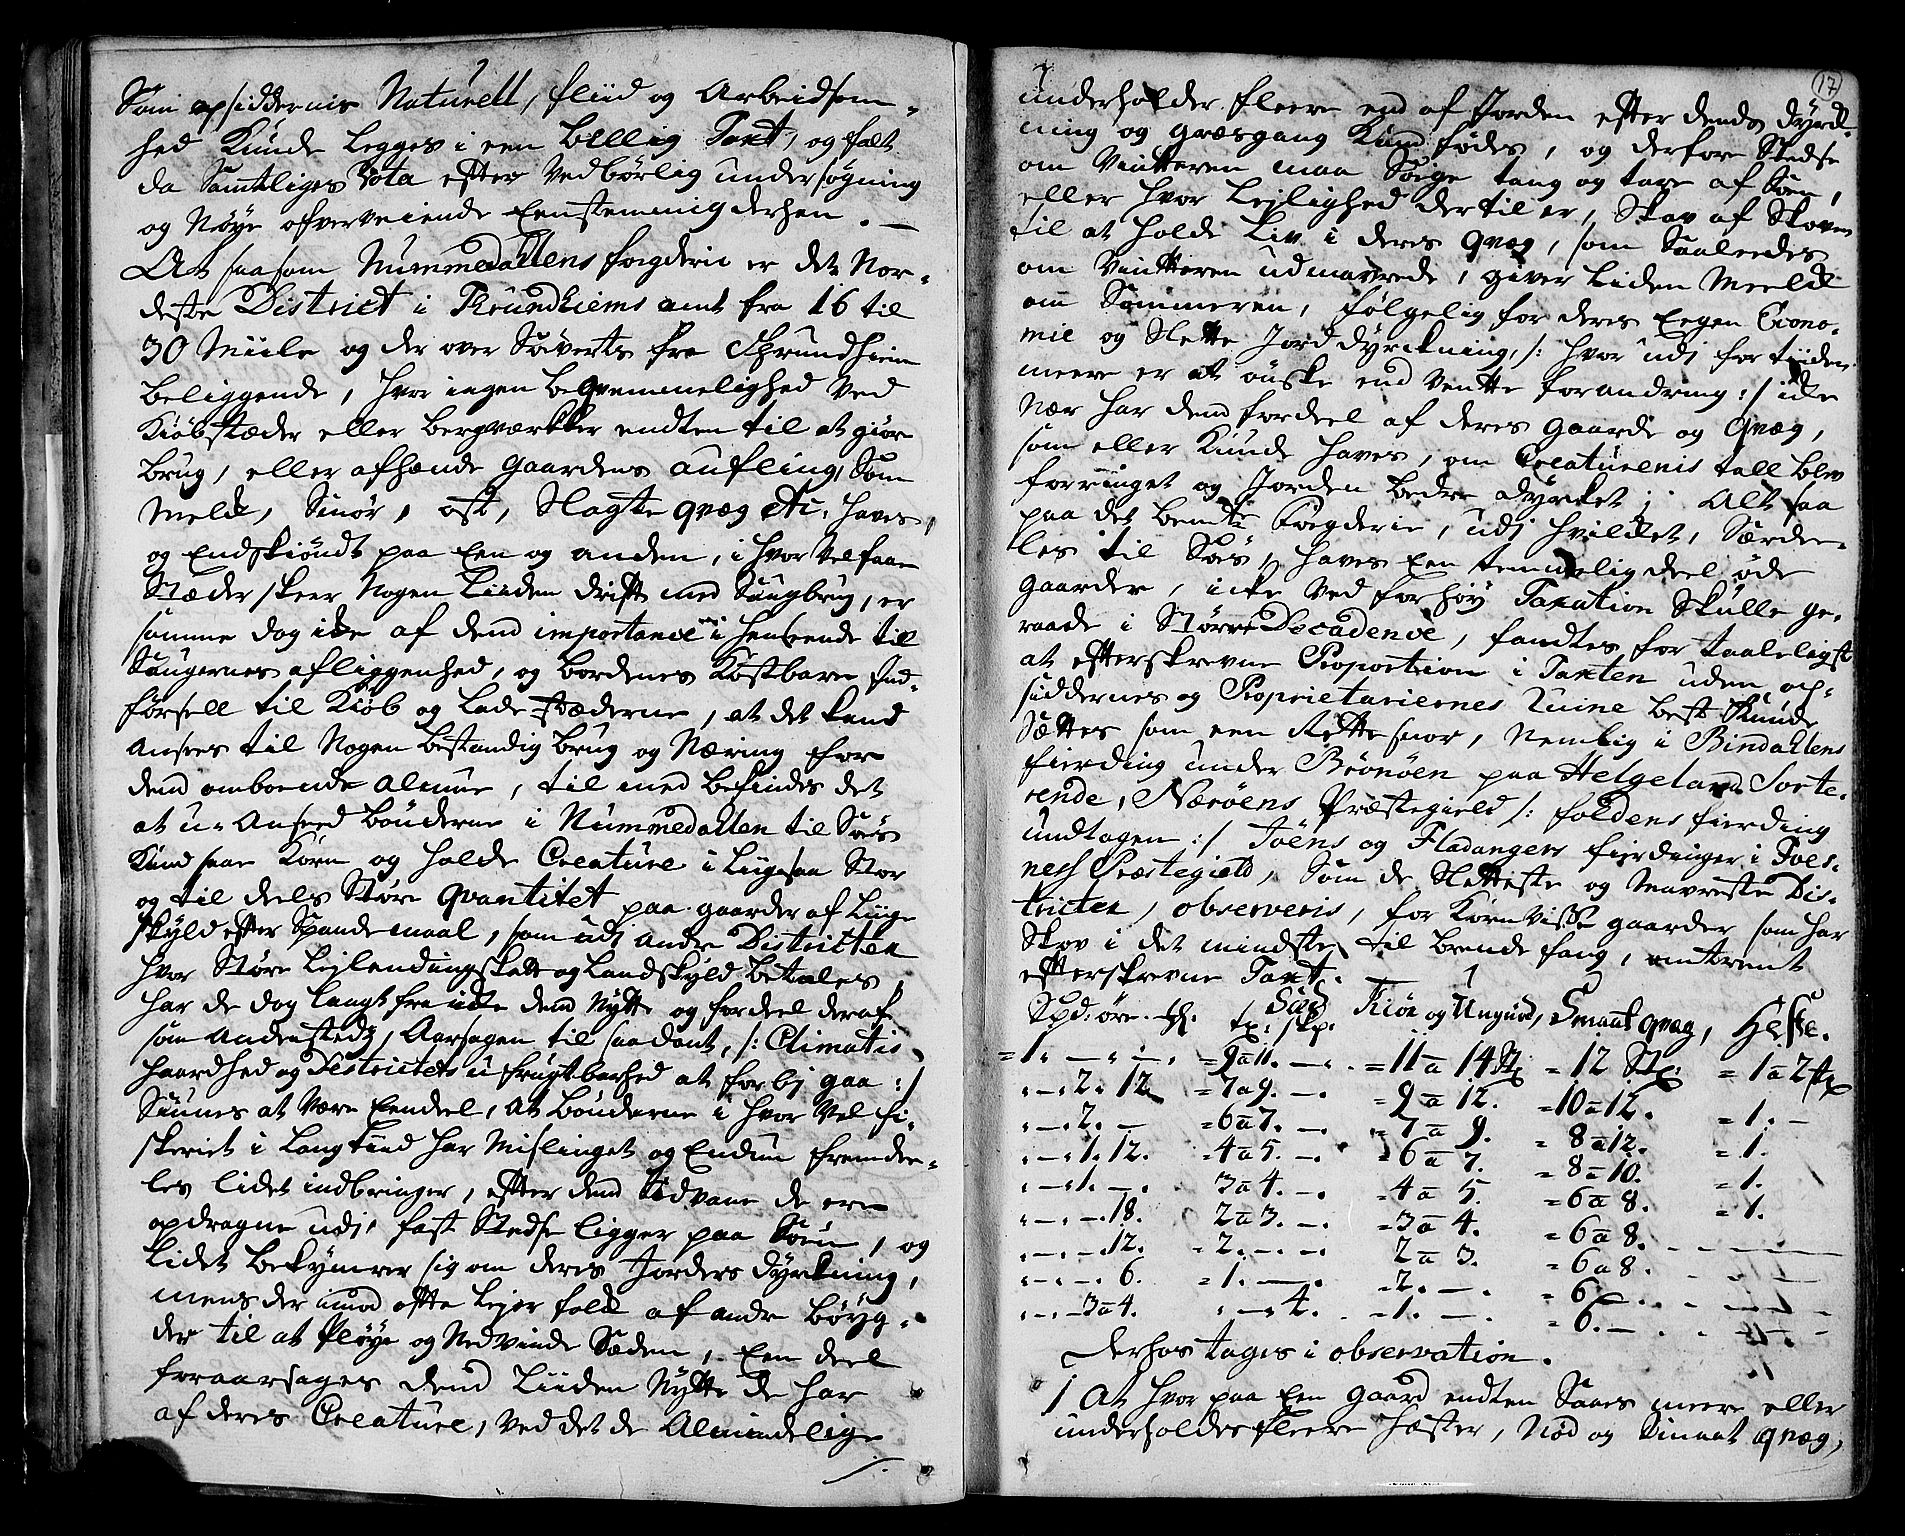 Som opsiddernis Naturell, fliid og Arbeidsom-
hed kunde legges i een billig Taxt, og falt
da Samtliges Vota efter Vedbørlig undersøgning
og Nøye ofverveiende Eenstemmig derhen.
At saasom Nummedallens fogderie er det Nor-
deste District i Thrundhiems amt fra 16 til
30 Miile og der over Søverts fra Thrundhiem
beliggende, hvor ingen beqvemmelighed ved
Kiøbstæder eller bergværkker endten til at giøre
brug, eller afhænde gaardens aufling, Som
Melk, Smør, ost, Slagte qvæg etc: haves,
og Endskiøndt paa Een og anden, i hvor vel faae
Stæder skeer Nogen liiden drift med Saugbrug, er
samme dog icke af dend importance i henseende til
Saugernes afliggenhed, og bordenes Kostbare fød-
førsell til Kiøb og Ladestæderne, at det kand
Ansees til Nogen bestandig brug og Næring for
dend omboende almue, til med befindes det
at u-Anseed bønderne i Nummedallen til Søes
Kand saae Korn og holde Creature i Liigesaa Stor
og til deels Støre qvantitet paa gaarder af Liige
skyld efter Spandemaal, som udj andre Districter
hvor Støre Lejlendingskatt og Landskyld betales,
har de dog langt fra icke dend Nytte og fordeel deraf
som Andenstedz, Aarsagen til saadant, /: Climatis
haardhed og Districtets ufrugtbarhed at forbj gaa :/
Siunes at være Eendeel, at bønderne i hvor vel fi-
skeriet i Lang tiid har mislinget og Endnu fremdee-
les lidet indbringer, efter dend Sædvane de ere
opdragne udj, fast Stedse ligger paa Søen, og
lidet bekymrer sig om deres Jorders dyrkning,
mens der imod ofte lejer folck af andre bøyg-
der til at Pløye og Nedvinde Sæden, Een deel
foraarsages dend liiden Nytte de har
af deres Creature, ved det de Almindelige
17
underholder fleere end af Jorden efter dends dyrk-
ning og græsgang kand fødes, og derfore Stedse
om Vinteren maa Søge tang og tare af Søen,
eller hvor lejlighed dertil er, Skav af Skoven
til at holde Liv i deres qvæg, som Saaleedes
om Vinteren udmavrede, giver liden Meelk
om Sommeren, følgelig for deres Eegen Econo-
mie og Slette Jord dyrckning, /: hvor udj for tiiden
meere er at ønske end vente forandring :/ icke
Nær har dend fordeel af deres gaarde og qvæg,
som eller kunde haves, om Creaturenis tall blev
forringet og Jorden bedre dyrcket; Alt saa
paa det bemte fogderie, udj hvilcket, Særdee-
les til Søes, haves Een temmelig deel øde
gaarder, icke ved for høy Taxation Skulle ge-
raade i Større Decadence, fandtes for taaleligst
at efterskrevne Proportion i Taxten uden op-
siddernes og Proprietariernes Ruine best kunde
Sættes som een Rettesnor, Nemlig i Bindahlens
fierding under Brønøen paa Helgeland Sorte-
rende, Nærøens Præstegield /: foldens fierding
undtagen :/ Jøens og Fladangers fierdinger i Foes-
ness Præstegield, Som de Sletteste og Mavreste Dis-
tricter, observeris, for Korn visse gaarder som har
Skov i det mindste til brende fang, omtrent
efterskrevne Taxt.
Spd: øre. Sæd tr: skp: Kiør og Ungnød, Smaat qvæg, Heste.
=1. — . — . =9 a 11. — . =11 a 14 St =12 St: =1 a 2 St
. — .2. 12. =7 a 9. — . =9 a 12. =10 a 12. =1. —
. — .2. — =6 a 7. — . =7 a 9. =8 a 12. =1.
. — .1. 12. =4 a 5. — . =6 a 7. =8 a 10. =1.
. — .1. — . 3 a 4. — . =4 a 5. =6 a 8. =1.
. — . — .18. 2 a 3. — . =3 a 4. =6 a 8.
. — . — .12. =2. — . — . 2 a 3. =6 a 8.
. — . — . 6. =1. — . =2. — . =6 — .
. — . — 3 a 4. . — . 4. =1. — . =6. — .
Derhos tages i observation.
1 At hvor paa Een gaard endten Saaes meere eller
underholdes fleere hæster, Nød og Smaat qvæg,